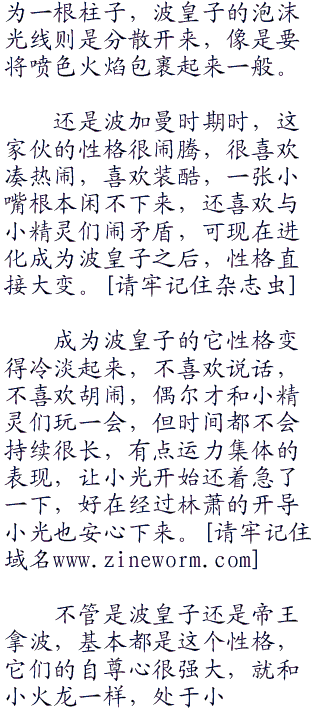 为一根柱子，波皇子的泡沫
光线则是分散开来，像是要
将喷色火焰包裹起来一般。
还是波加曼时期时，这
家伙的性格很闹腾，很喜欢
凑热闹，喜欢装酷，一张小
嘴根本闲不下来，还喜欢与
小精灵们闹矛盾，可现在进
化成为波皇子之后，性格直
接大变。[请牢记住杂志虫]
成为波皇子的它性格变
得冷淡起来，不喜欢说话，
不喜欢胡闹，偶尔才和小精
灵们玩一会，但时间都不会
持续很长，有点运力集体的
表现，让小光开始还着急了
一下，好在经过林萧的开导
小光也安心下来。[请牢记住
域名www.zineworm.com]
不管是波皇子还是帝王
拿波，基本都是这个性格，
它们的自尊心很强大，就和
小火龙一样，处于小